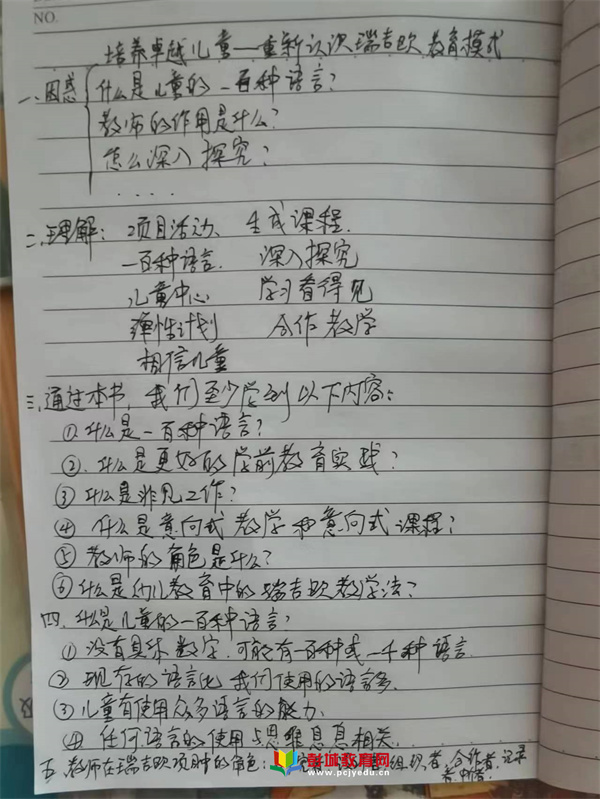 NO.
培养卓越儿童—重新认识瑞吉欧教育模式
一、困惑 什么是儿童的一百种语言?
教师的作用是什么?
怎么深入探究?
....
二、理解: 项目活动、 生成课程.
一百种语言. 深入探究
儿童中心 学习看得见
弹性计划 合作教学
相信儿童
三、通过本书, 我们至少学到以下内容:
①.什么是一百种语言?
②.什么是更好的学前教育实践?
③什么是非凡工作?
④ 什么是意向式教学和意向式课程?
⑤ 教师的角色是什么?
⑥什么是幼儿教育中的瑞吉欧教学法?
四、什么是儿童的一百种语言?
① 没有具体数字.可能有一百种或一千种语言.
② 现存的语言比我们使用的语言多.
③儿童有使用众多语言的能力.
④ 任何语言的使用与思维息息相关.
五、教师在瑞吉欧项目中的角色: 组织者,合作者,记录者
彭城教育网
www.pcjyedu.cn